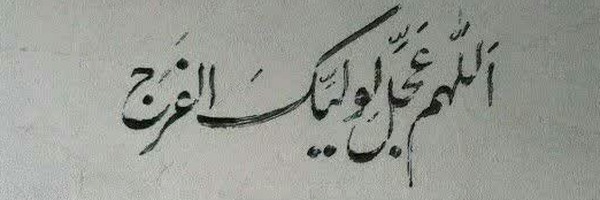 اَللّٰهم عَجِّل لِوَلیَّکَ الفَرَج